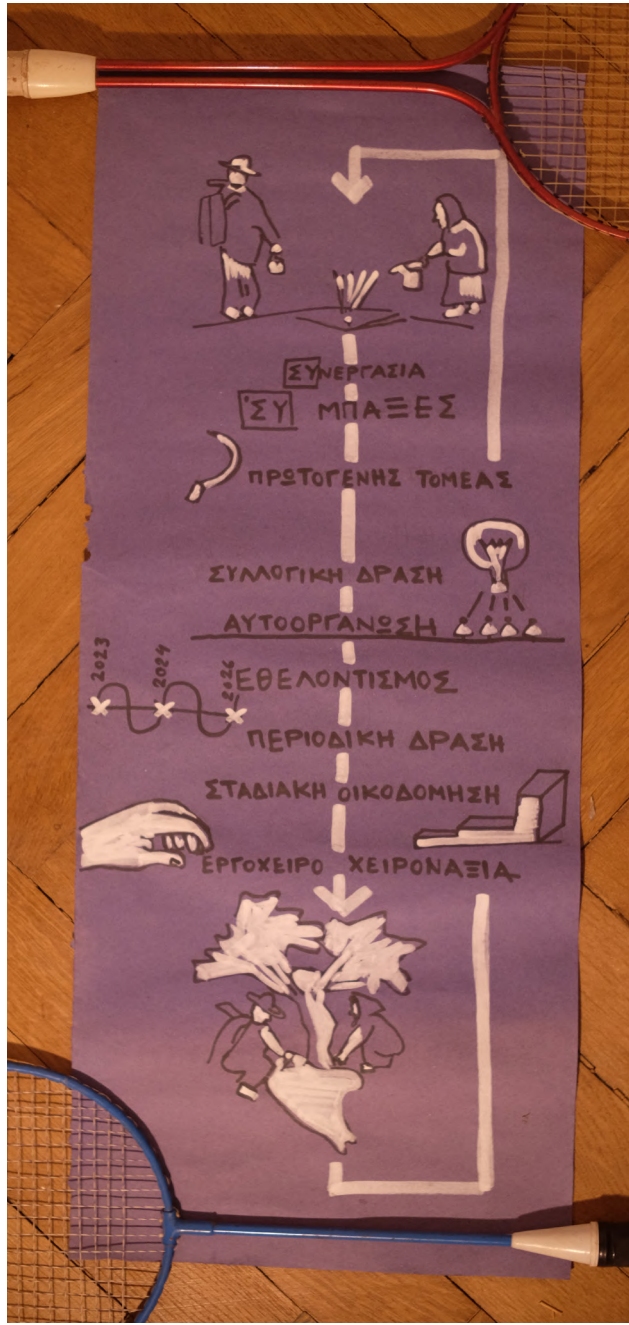 ΣΥΝΕΡΓΑΣΙΑ
ΣΥ ΜΠΑΞΕΣ
ΠΡΩΤΟΓΕΝΗΣ ΤΟΜΕΑΣ
ΣΥΛΛΟΓΙΚΗ ΔΡΑΣΗ
ΑΥΤΟΟΡΓΑΝΩΣΗ
2023
2024
2026
ΕΘΕΛΟΝΤΙΣΜΟΣ
ΠΕΡΙΟΔΙΚΗ ΔΡΑΣΗ
ΣΤΑΔΙΑΚΗ ΟΙΚΟΔΟΜΗΣΗ
ΕΡΓΟΧΕΙΡΟ ΧΕΙΡΟΝΑΞΙΑ